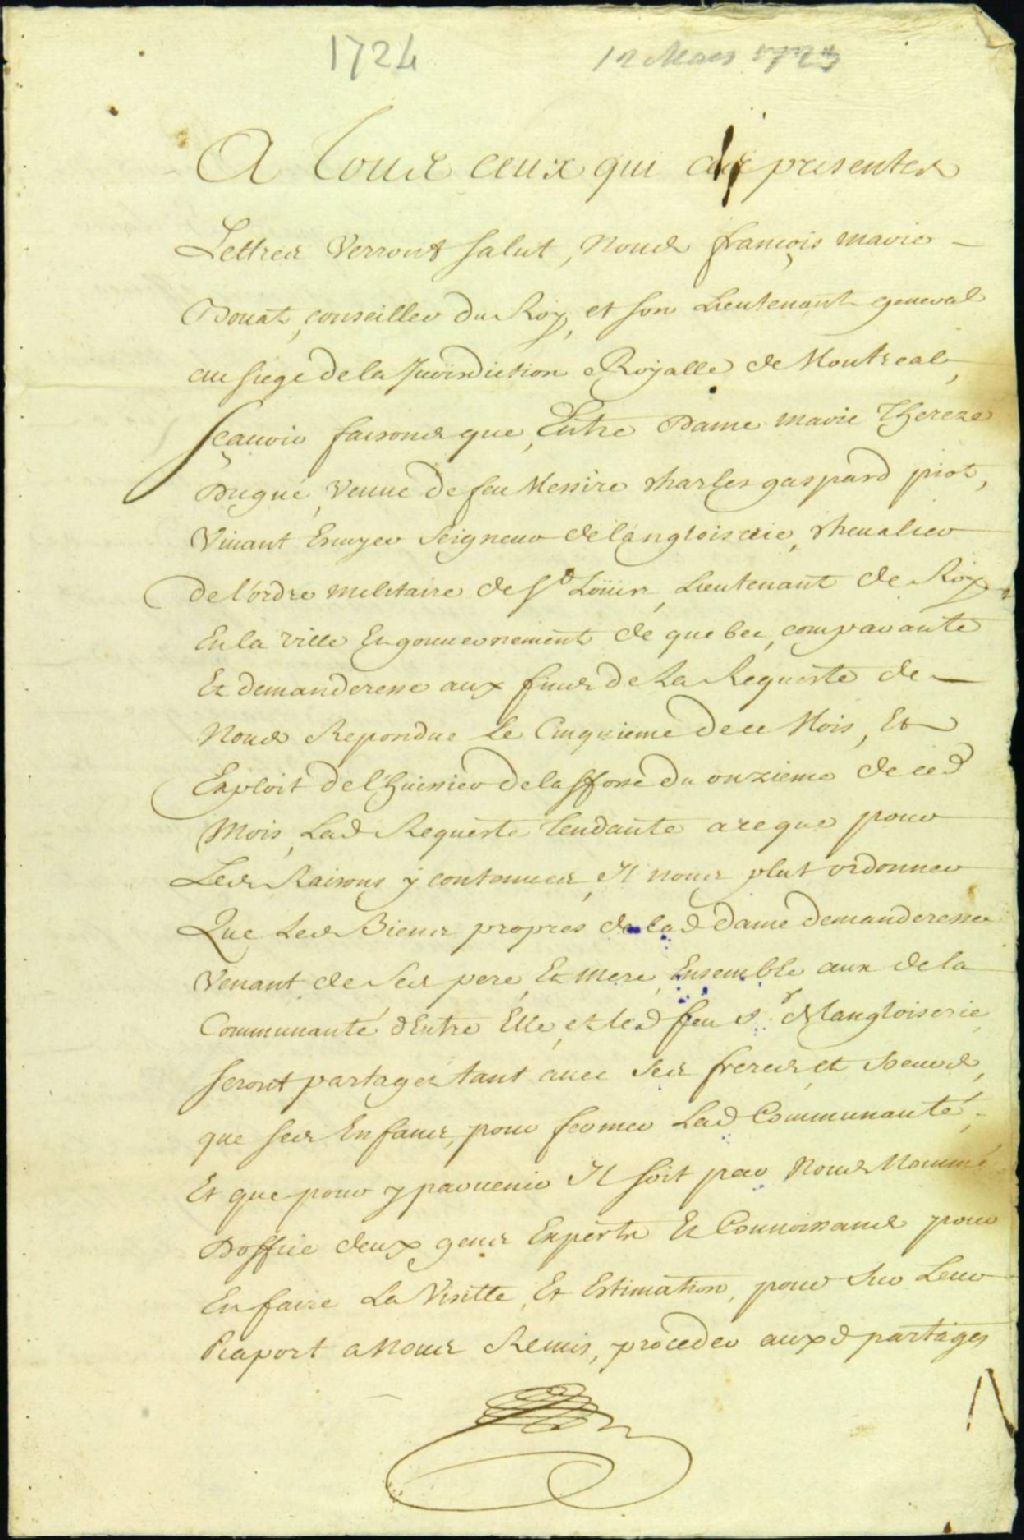 1724
12 Mars 1724
A Tous ceux qui ces presentes
Lettres Verront Salut, Nous françois marie
Bouat, conseiller du Roy, et son Lieutenant general
au siege de la Jurisdiction Royalle de Montreal,
sçauoir faisons que Entre Dame marie Thereze
Dugué, Veuue de feu Messire charles gaspard piot,
Viuant Escuyer Seigneur de langloiserie, cheualier
de l'ordre militaire de St Loüis, Lieutenant de Roy
En la ville Et gouuernement de quebec, comparante
Et demanderesse aux fins de sa Requeste de
Nous Repondue Le Cinquieme de ce Mois, Et
Exploit de l'huissier de la ffosse du onzieme de ced
Mois, Lad Requeste tendante a ce que pour
Les Raisons y contenues, Il nous plut ordonner
Que Les Biens propres de lad dame demanderesse
Venant de Ses pere, Et mere, Ensemble ceux de la
Communauté d'Entre Elle, et led feu Sr de langloiserie
seront partages tant auec ses freres, et soeurs,
que ses Enfans, pour fermer Lad Communauté,
Et que pour y paruenir Il soit par Nous Nommé
Doffice deux gens Experts Et Connoissans pour
En faire La Visitte, Et Estimation, pour sur Leur
Raport a Nous Remis, proceder auxd partages